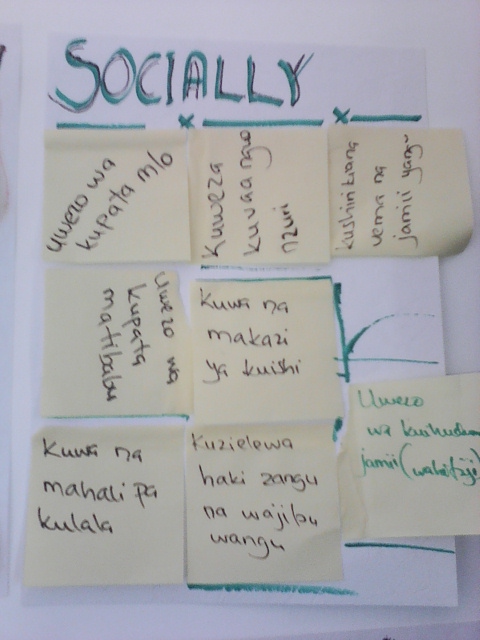 SOCIALLY
Uwezo wa
kupata m/o
Kuweza
kuvaa nguo
nzuri
kushirikiana
vema na
jamii yangu
Uwezo wa
kupata
matibabu
Kuwa na
makazi
ya kuishi
Uwezo
wa kuihudum
jamii (wahitaji)
Kuwa na
mahali pa
kulala
Kuzielewa
haki zangu
na wajibu
wangu